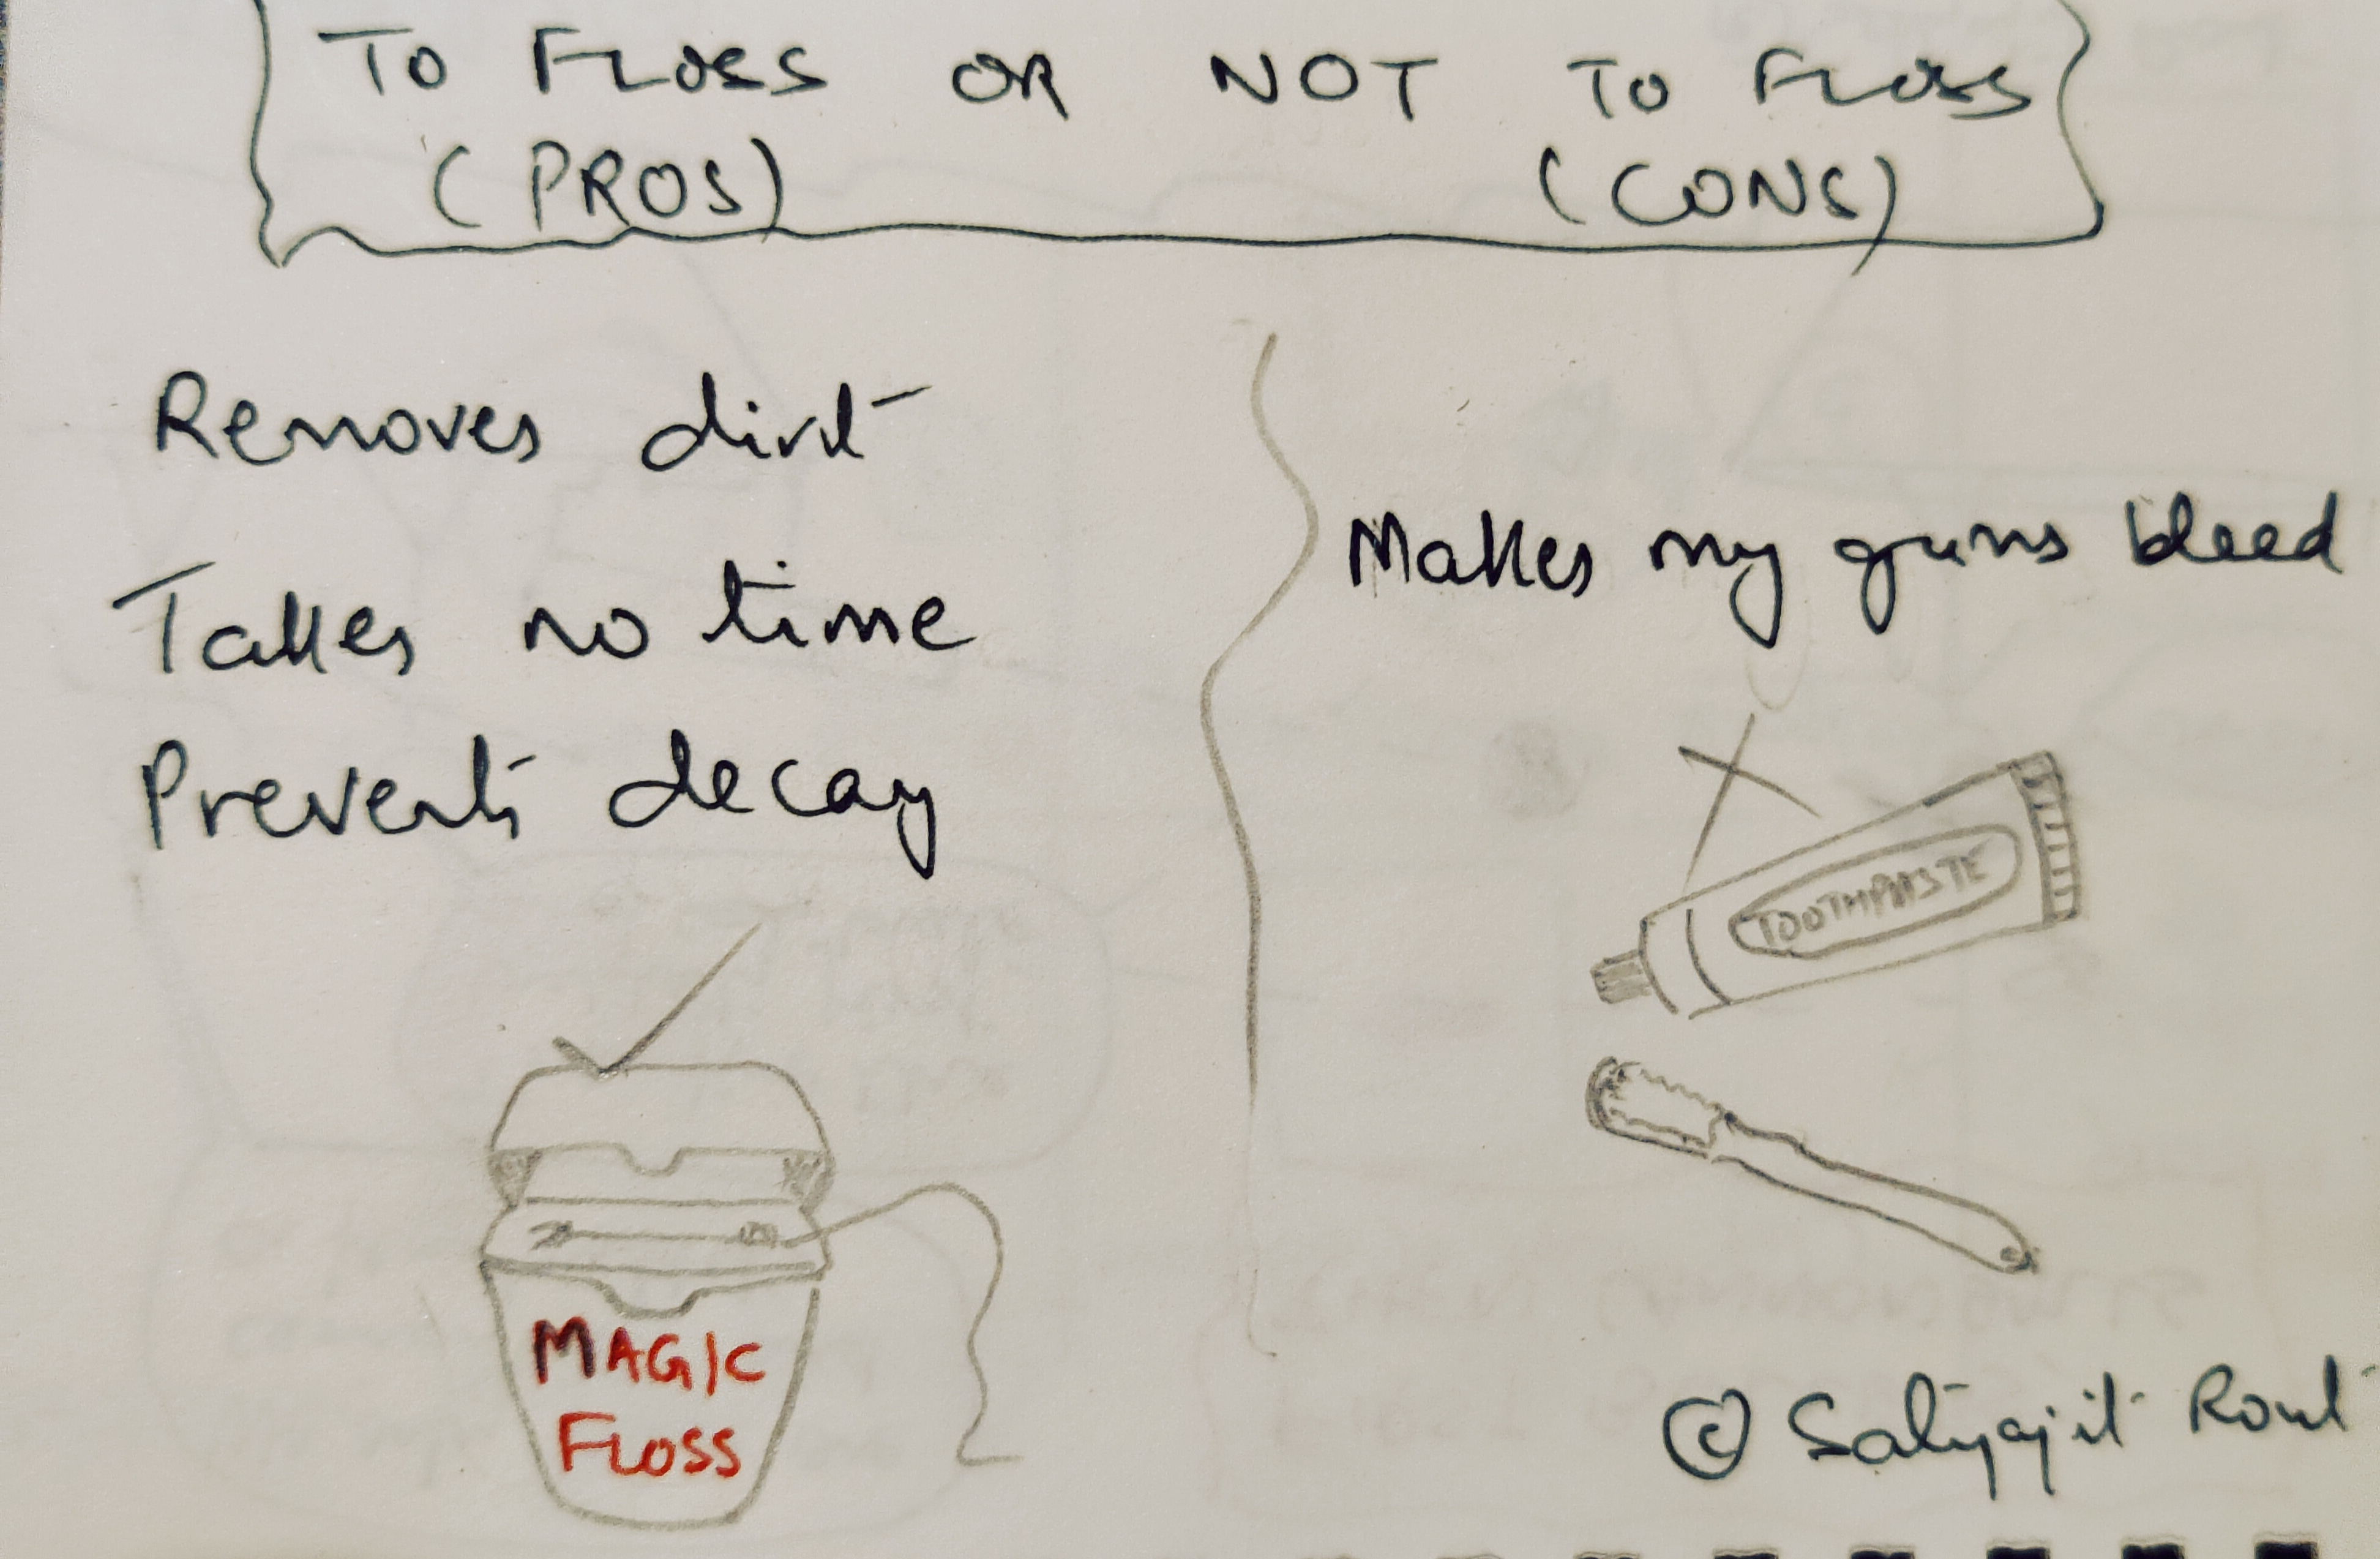 TO FLOSS OR NOT TO FLOSS
(PROS) (CONS)
Removes dirt
Takes no time
Prevents decay
Makes my gums bleed
TOOTHPASTE
MAGIC
FLOSS
© Satyajit Rout